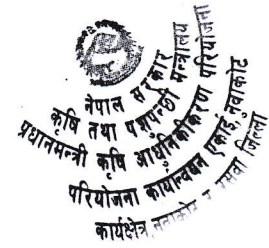 नेपाल सरकार
कृषि तथा पशुपन्छी मन्त्रालय
प्रधानमन्त्री कृषि आधुनिकीकरण परियोजना
परियोजना कार्यान्वयन एकाई, नुवाकोट
कार्यक्षेत्र नुवाकोट र रसुवा जिल्ला